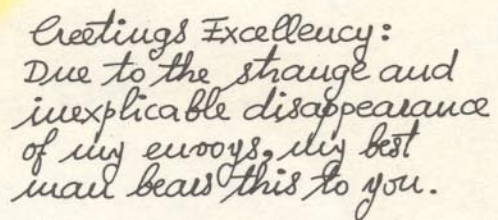 Greetings Excellency:
Due to the strange and
inexplicable disappearance
of my envoys, my best
man bears this to you.